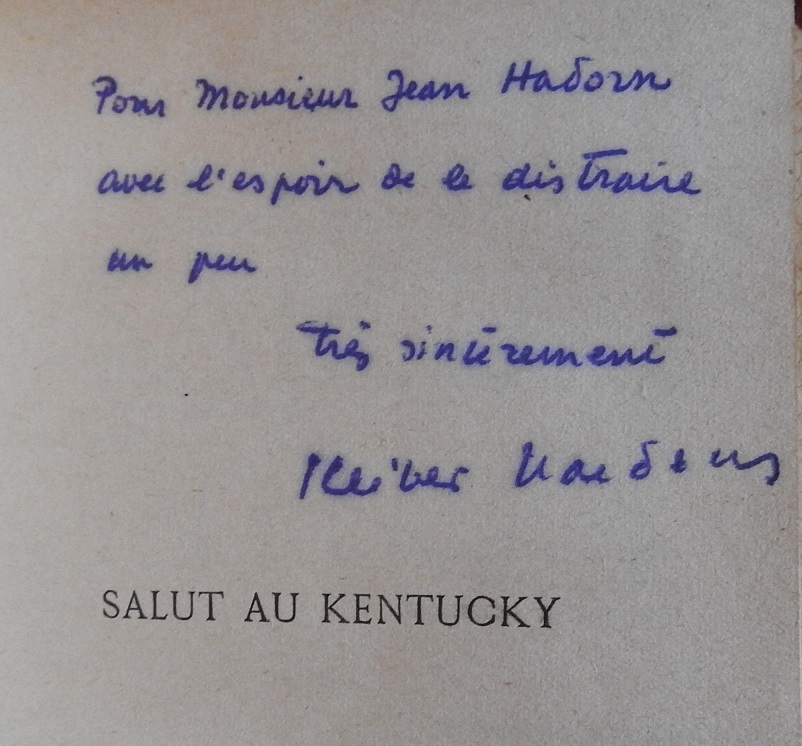 Pour Monsieur Jean Hadorn
avec l'espoir de le distraire
un peu
très sincèrement
Kléber Haedens
SALUT AU KENTUCKY